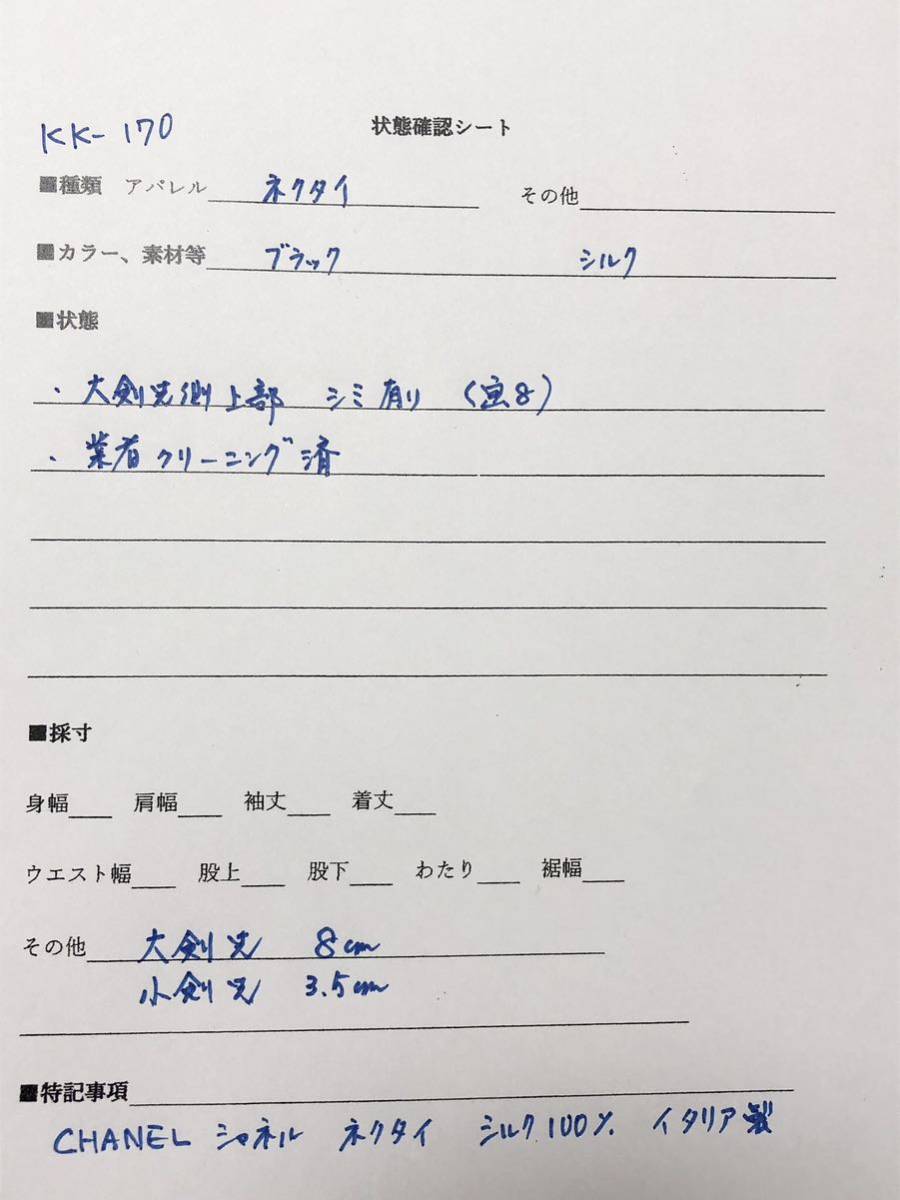 KK-170
状態確認シート
■種類 アパレル ネクタイ その他
■カラー、素材等 ブラック シルク
■状態
・大剣先側上部 シミ有り (写8)
・業者クリーニング済
■採寸
身幅 肩幅 袖丈 着丈
ウエスト幅 股上 股下 わたり 裾幅
その他 大剣先 8cm
小剣先 3.5cm
■特記事項
CHANEL シャネル ネクタイ シルク100% イタリア製